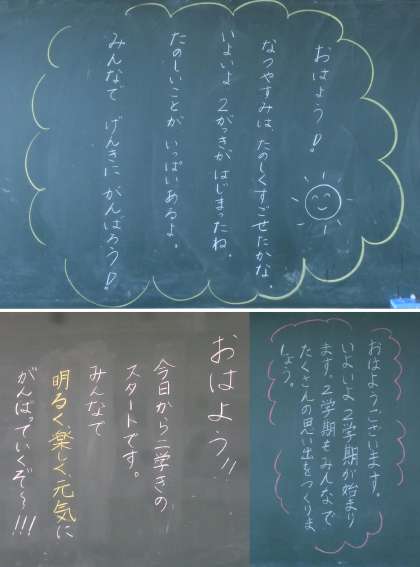 おはよう!
なつやすみは、たのしくすごせたかな。
いよいよ 2がっきが はじまったね。
たのしいことが いっぱいあるよ。
みんなで げんきに がんばろう!
おはよう!!
今日から二学きの
スタートです。
みんなで
明るく楽しく元気に
がんばっていくぞ〜!!!
おはようございます。
いよいよ2学期が始まり
ます。2学期もみんなで
たくさんの思い出をつくりま
しょう。